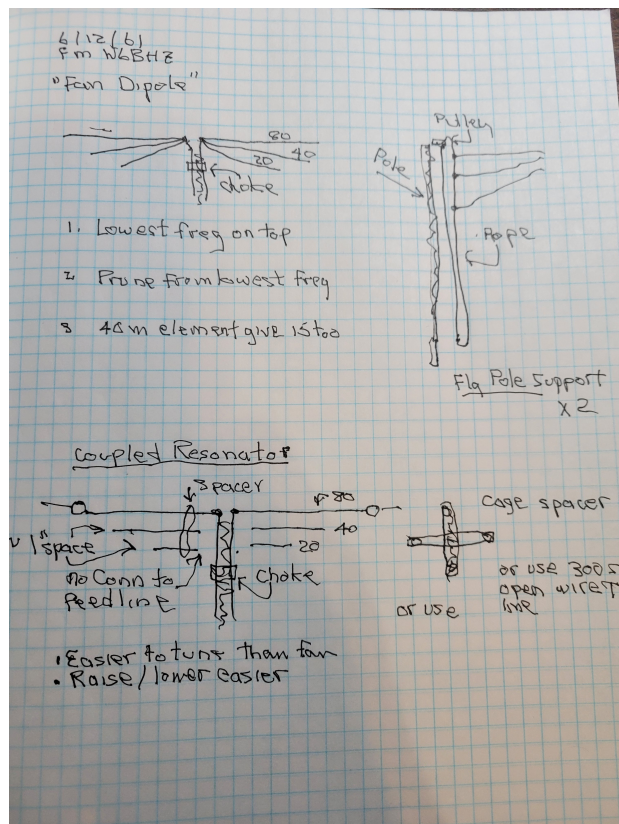 6/12/61
fm W6BHZ
"Fan Dipole"
80
40
20
choke
Pulley
Pole
Rope
1. Lowest freq on top
2 Prune from lowest freq
3 40m element give 15 too
Flg Pole Support
X2
Coupled Resonator
Spacer
80
40
20
1" space
no Conn to
feedline
Choke
Cage spacer
or use 300
open wire
line
or use
• Easier to tune than fan
• Raise/lower easier